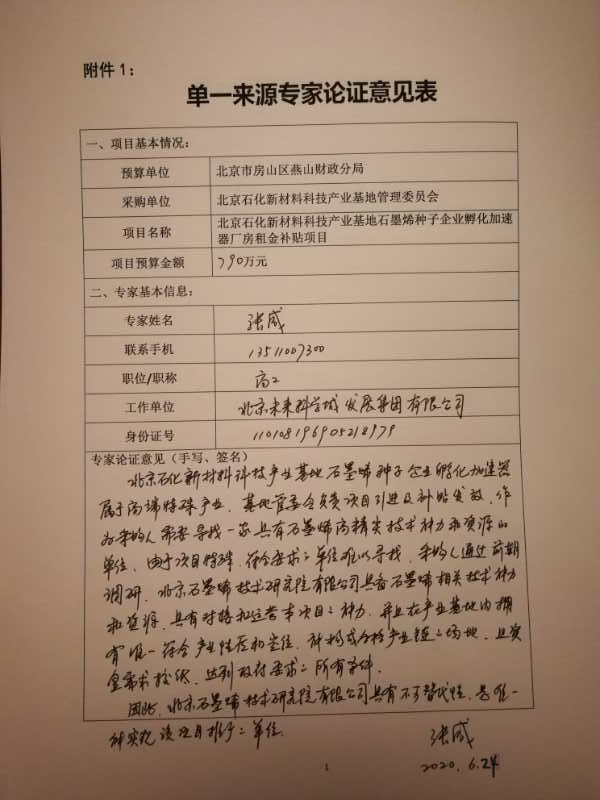 附件1：
单一来源专家论证意见表
一、项目基本情况：
预算单位 北京市房山区燕山财政分局
采购单位 北京石化新材料科技产业基地管理委员会
项目名称 北京石化新材料科技产业基地石墨烯种子企业孵化加速
器厂房租金补贴项目
项目预算金额 790万元
二、专家基本信息：
专家姓名 张威
联系手机 13511007300
职位/职称 高工
工作单位 北京未来科学城发展集团有限公司
身份证号 110108196905218979
专家论证意见（手写、签名）
北京石化新材料科技产业基地石墨烯种子企业孵化加速器
属于高端特殊产业，基地管委会负责项目引进及补贴发放，作
为采购人需要寻找一家具有石墨烯高精尖技术能力和资源的
单位，由于项目特殊，符合要求之单位难以寻找，采购人通过前期
调研，北京石墨烯技术研究院有限公司具备石墨烯相关技术能力
和资源，具有对接和运营本项目之能力，并且在产业基地内拥
有唯一符合产业性质和定位，能构成合格产业链之场地，且
需求，达到政府要求之所有条件。
因此，北京石墨烯技术研究院有限公司具有不可替代性，是唯一
能实施该项目推广之单位。
张威
2020.6.24
1